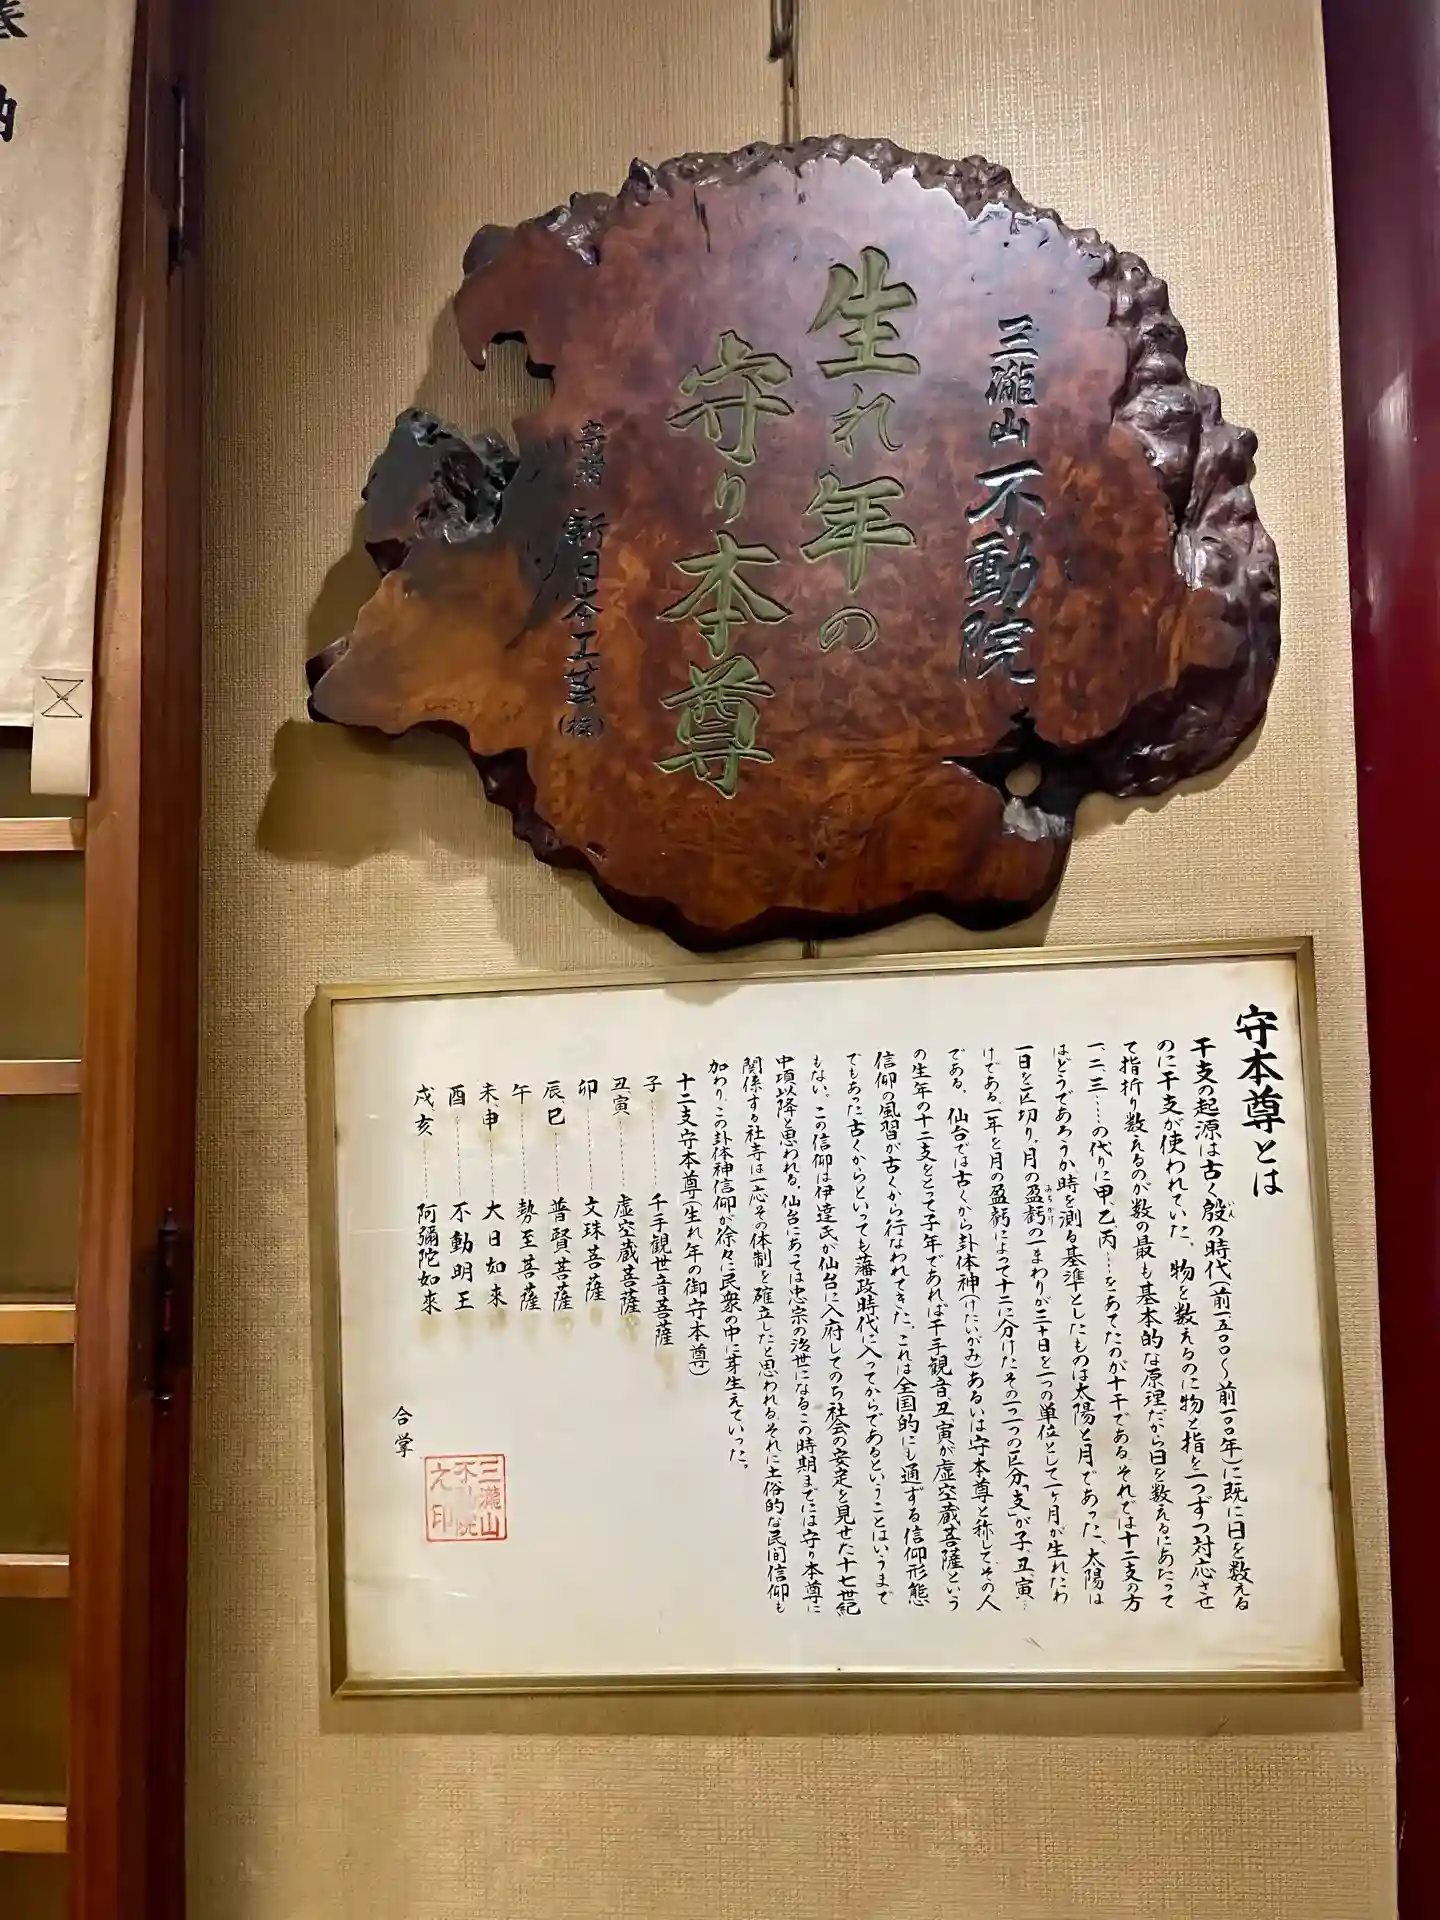 奉納
三瀧山不動院
生れ年の
守り本尊
新日本工芸(株)
守本尊とは
干支の起源は古く殷の時代(前一五〇〇〜前一一〇〇年)に既に日を数える
のに干支が使われていた。物を数えるのに物と指を一つずつ対応させ
て指折り数えるのが数の最も基本的な原理だから日を数えるにあたって
一、二、三……の代りに甲、乙、丙……をあてたのが十干である。それでは十二支の方
はどうであろうか。時を測る基準としたものは太陽と月であった。太陽は
一日を区切り、月の盈虧の一まわりが三十日を一つの単位として一ヶ月が生れたわ
けである。一年を月の盈虧によって十二に分けたその一つ一つの区分「支」が子、丑、寅…
である。仙台では古くから卦体神(けたいがみ)あるいは守本尊と称してその人
の生年の十二支をとって子年であれば千手観音、丑、寅が虚空蔵菩薩という
信仰の風習が古くから行なわれてきた。これは全国的にも通ずる信仰形態
でもあった。古くからといっても藩政時代に入ってからであるということはいうまで
もない。この信仰は伊達氏が仙台に入府してのち社会の安定を見せた十七世紀
中項以降と思われる。仙台にあっては忠宗の治世になるこの時期までには守り本尊に
関係する社寺は一応その体制を確立したと思われる。それに土俗的な民間信仰も
加わり、この卦体神信仰が徐々に民衆の中に芽生えていった。
十二支守本尊(生れ年の御守本尊)
子……千手観世音菩薩
丑寅……虚空蔵菩薩
卯……文珠菩薩
辰巳……普賢菩薩
午……勢至菩薩
未申……大日如来
酉……不動明王
戌亥……阿彌陀如来
合掌
三瀧山
不動院
之印